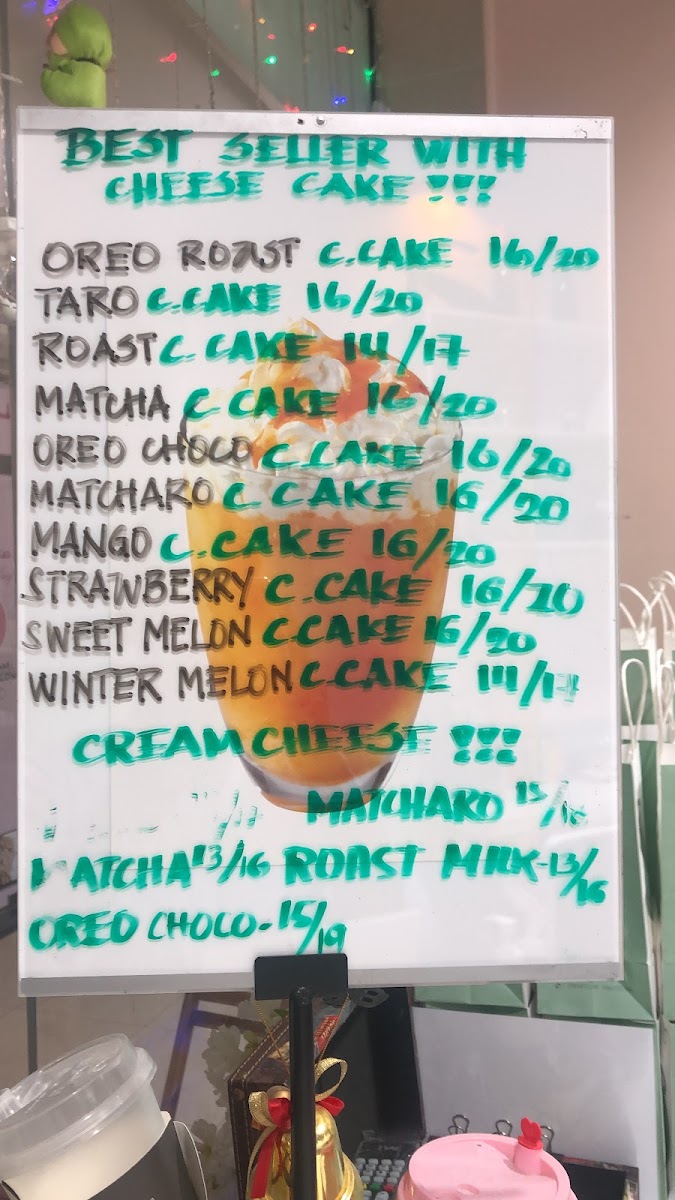 BEST SELLER WITH
CHEESE CAKE !!!
OREO ROAST C.CAKE 16/20
TARO C.CAKE 16/20
ROAST C. CAKE 14/17
MATCHA C CAKE 16/20
OREO CHOCO C.CAKE 16/20
MATCHARO C CAKE 16/20
MANGO C.CAKE 16/20
STRAWBERRY C.CAKE 16/20
SWEET MELON C.CAKE 16/20
WINTER MELON C.CAKE 14/17
CREAM CHEESE !!!
MATCHARO
MATCHA 13/16 ROAST MILK-13/16
OREO CHOCO-15/19